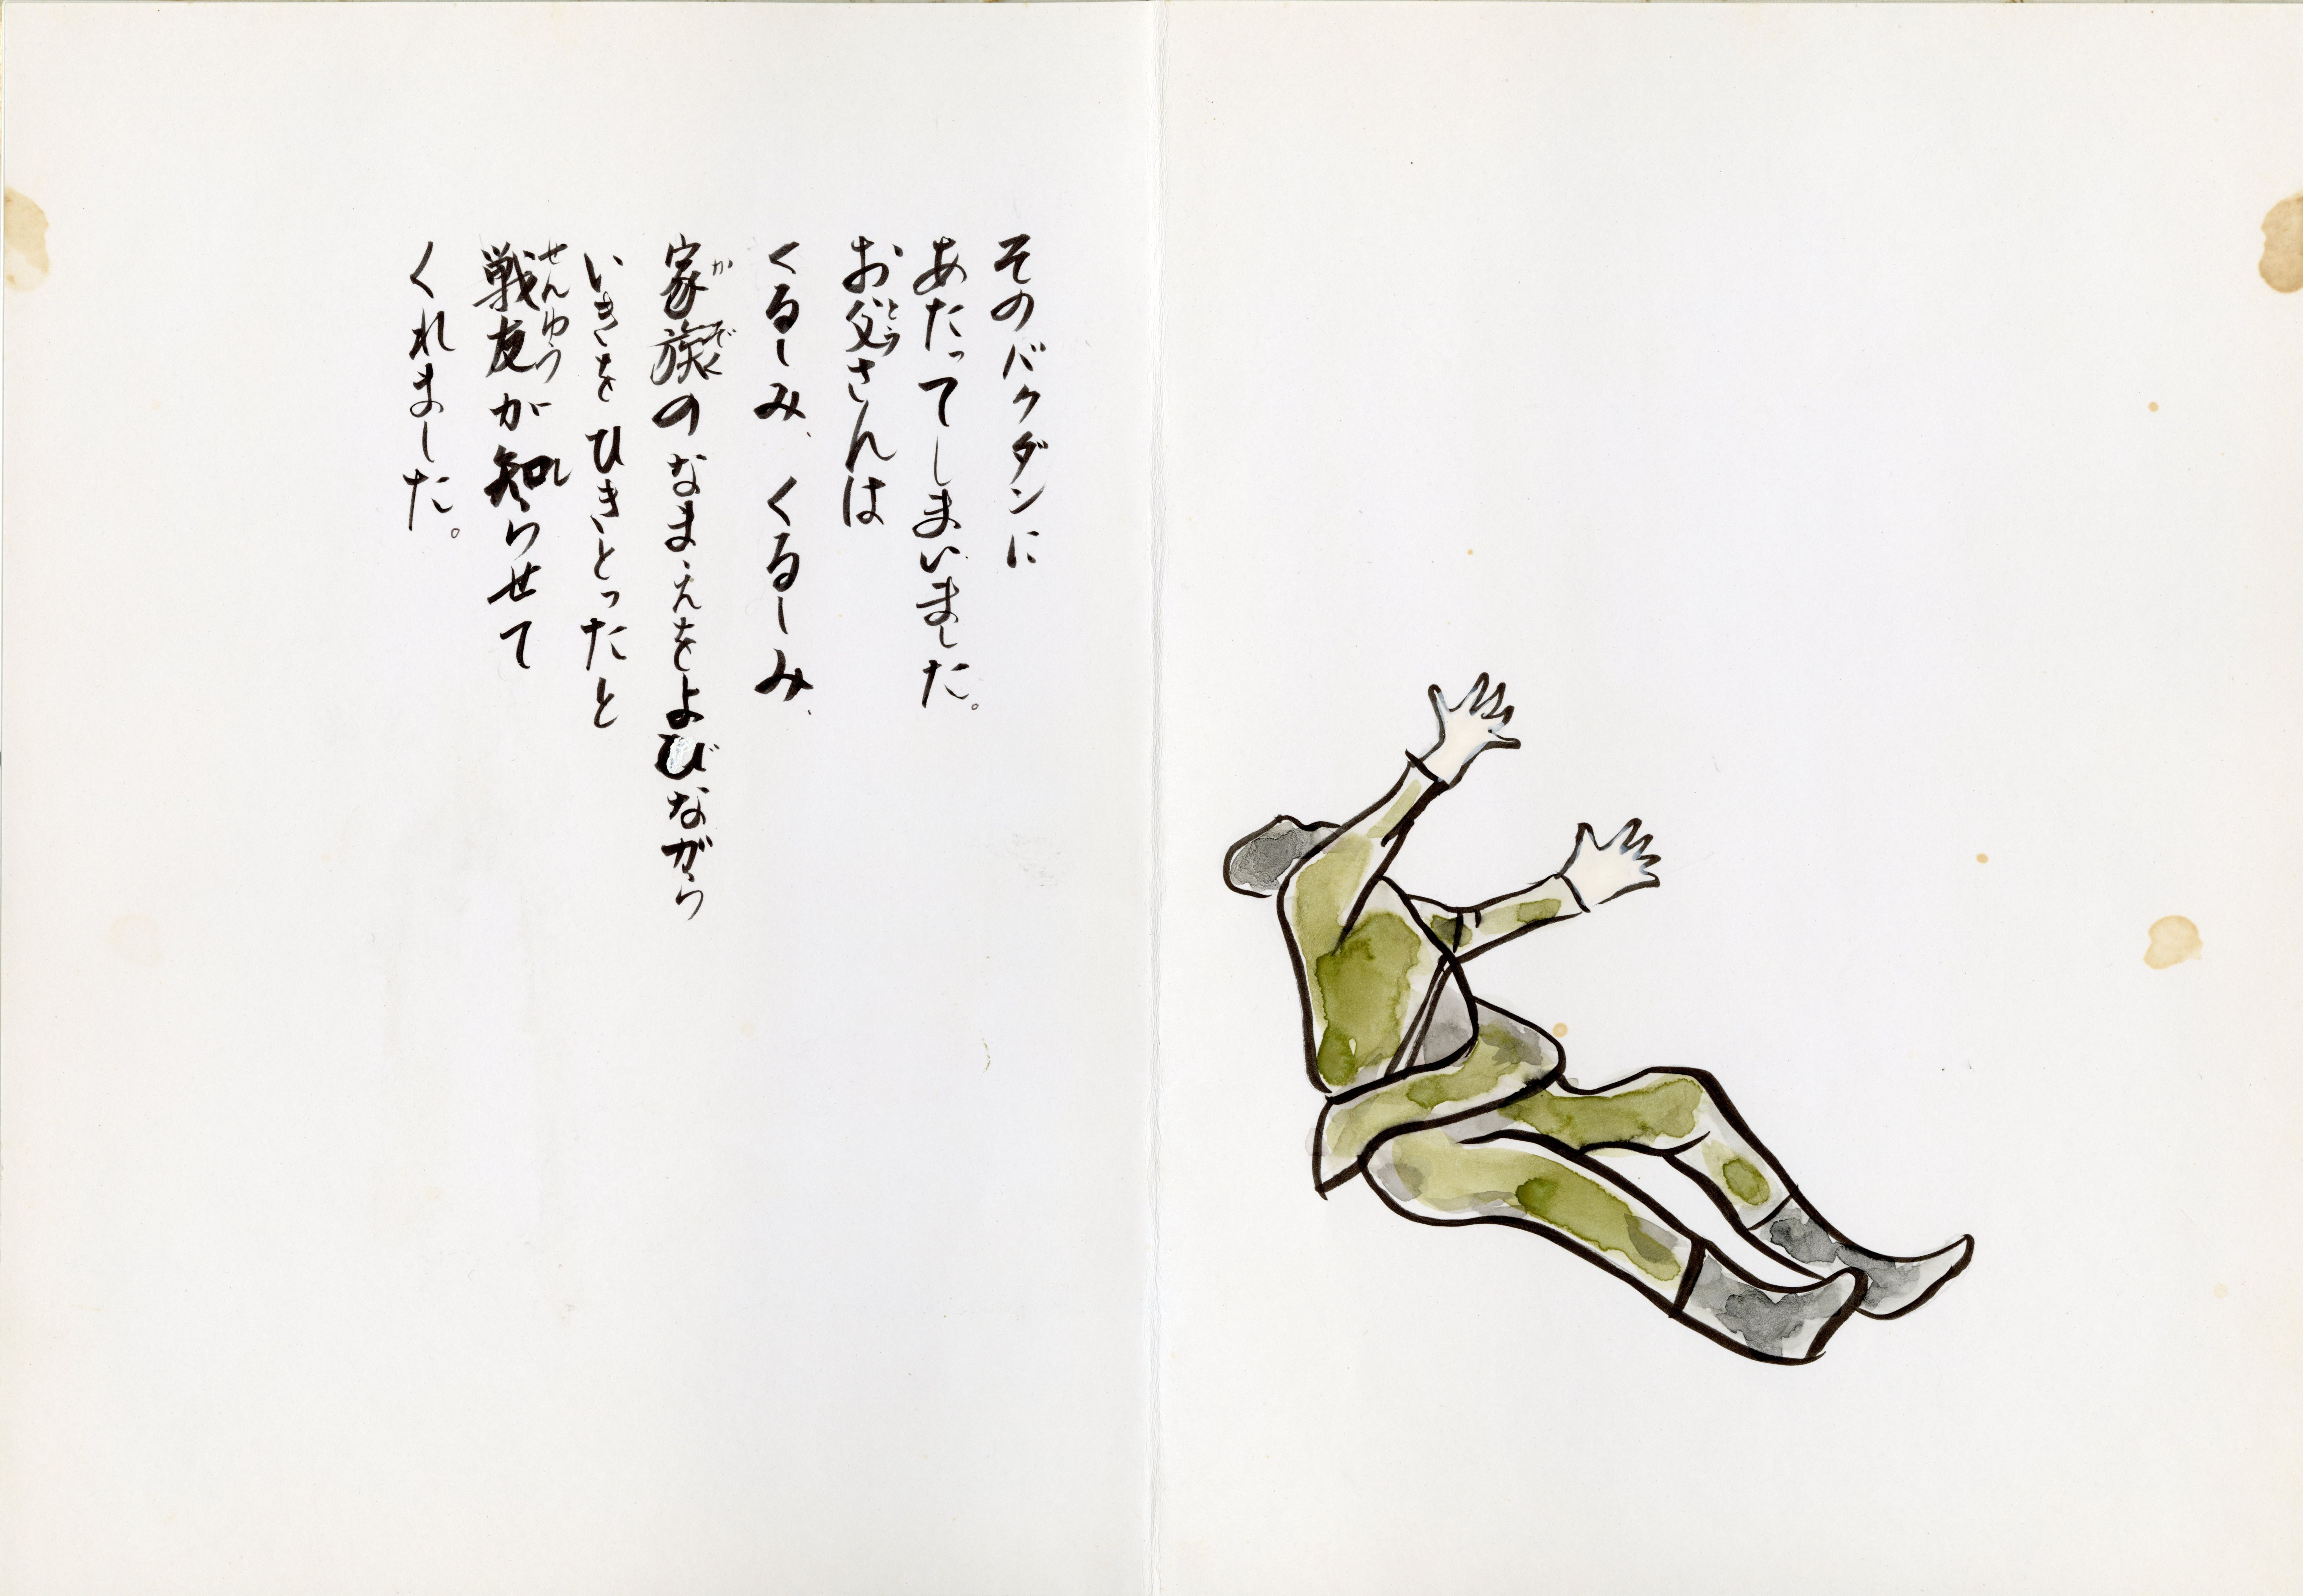 そのバクダンに
あたってしまいました。
お父さんは
くるしみ、くるしみ、
家族のなまえをよびながら
いきをひきとったと
戦友が知らせて
くれました。